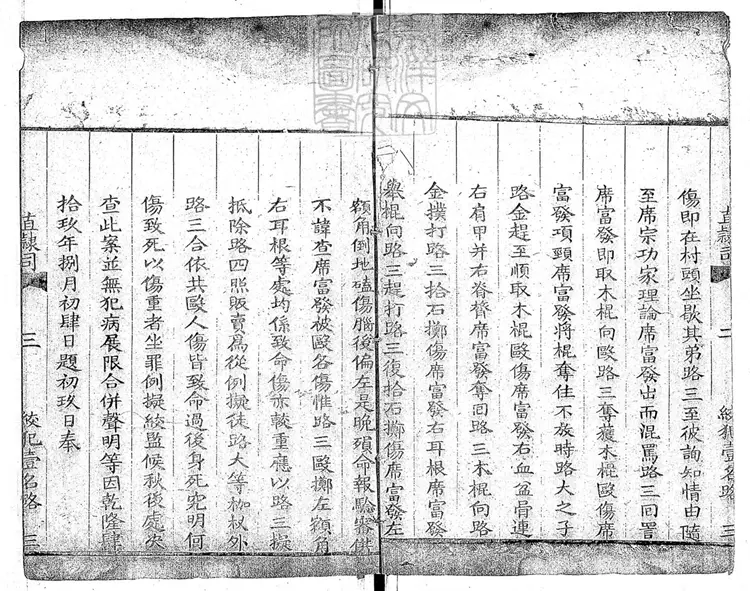 直隸司
二
絞犯壹名路
三
傷即在村頭坐歇其弟路三至彼詢知情由隨
至席宗功家理論席富發出而混罵路三回詈
席富發即取木棍向毆路三奪獲木棍毆傷席
富發項頸席富發將棍奪住不放時路大之子
路金趕至順取木棍毆傷席富發右血盆骨連
右肩甲并右脊膂席富發奪回路三木棍向路
金撲打路三拾石擲傷席富發右耳根席富發
舉棍向路三趕打路三復拾石擲傷席富發左
額角倒地磕傷腦後偏左是晚殞命報驗審供
不諱查席富發被毆各傷惟路三毆擲左額角
右耳根等處均係致命傷亦較重應以路三擬
抵除路四照販賣為從例擬徒路大等枷杖外
路三合依共毆人傷皆致命過後身死究明何
傷致死以傷重者坐罪例擬絞監候秋後處決
查此案並無犯病展限合併聲明等因乾隆肆
拾玖年捌月初肆日題初玖日奉
直隸司
三
絞犯壹名路
三